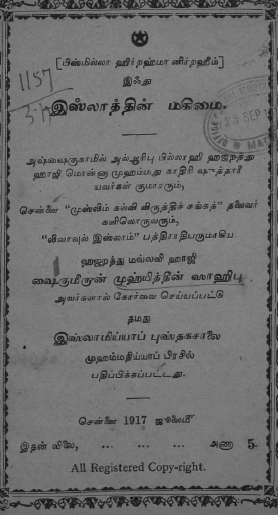 [பிஸ்மில்லா ஹிர்றஹ்மா னிர்றஹீம்]
1157
இஃது
இஸ்லாத்தின் மகிமை.
அஷ்ஷைகுகாமில் அல்ஆரிபு பில்லாஹி ஹஜறத்து
ஹாஜி மொன்னா முஹம்மது காதிரி
யவர்கள் குமாரரும்,
சென்னை "முஸ்லிம் கல்வி விருத்திச் சங்கத்" தலைவர்
களிலொருவரும்,
"லிவாவுல் இஸ்லாம்" பத்திராதிபருமாகிய
ஹஜறத்து மவ்லவி ஹாஜி
முஹ்யித்தீன் ஸாஹிபு
அவர்களால் கோர்வை செய்யப்பட்டு
தமது
இஸ்லாமிய்யாப் புஸ்தகசாலை
முஹம்மதிய்யாப் பிரசில்
பதிப்பிக்கப்பட்டது.
சென்னை 1917 ஜூலைமீ
இதன் விலை, ... ... ... அணா 5
All Registered Copy-right.